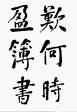 歎何時
盈簿書